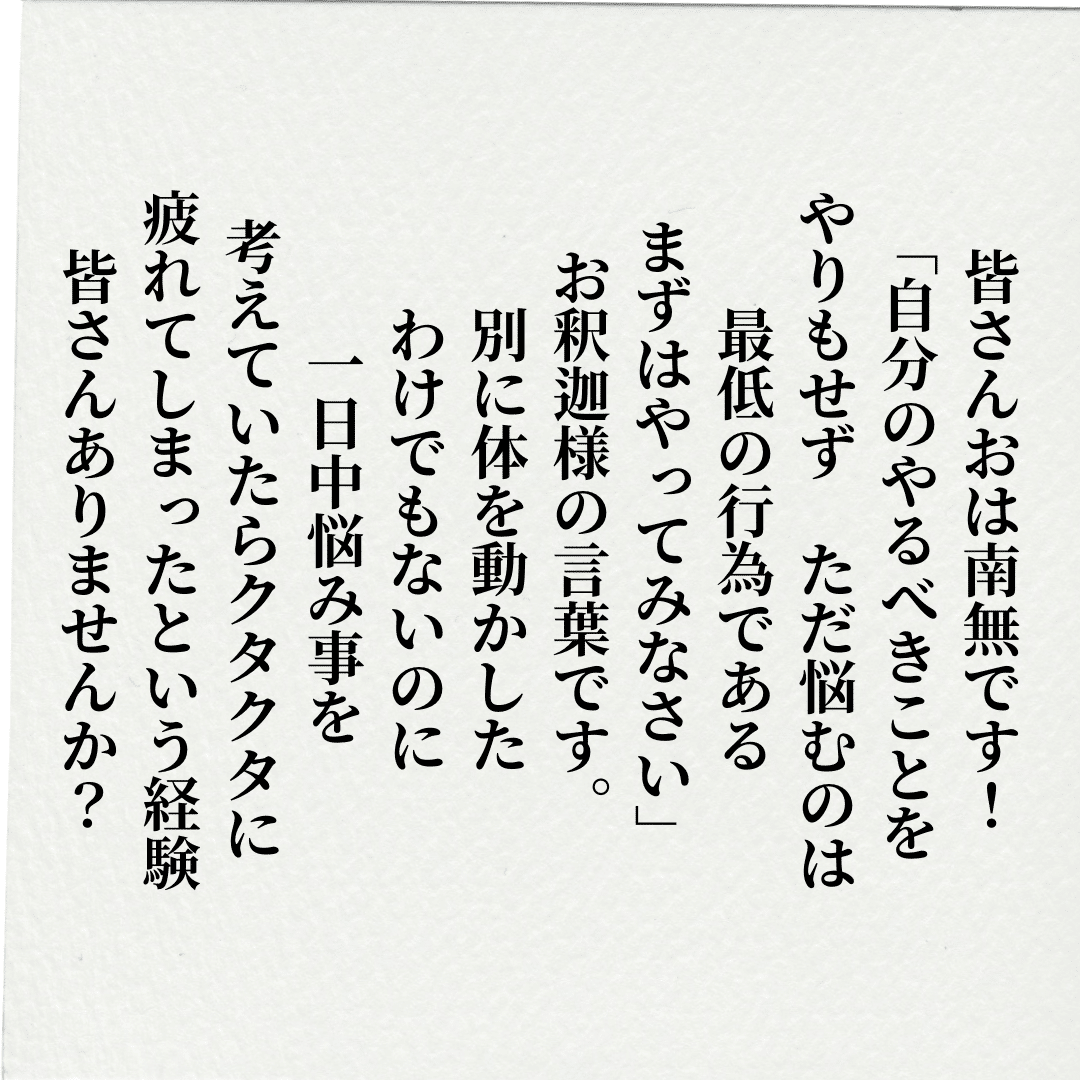 皆さんおは南無です！
「自分のやるべきことを
やりもせず　ただ悩むのは
最低の行為である
まずはやってみなさい」
お釈迦様の言葉です。
別に体を動かした
わけでもないのに
一日中悩み事を
考えていたらクタクタに
疲れてしまったという経験
皆さんありませんか？